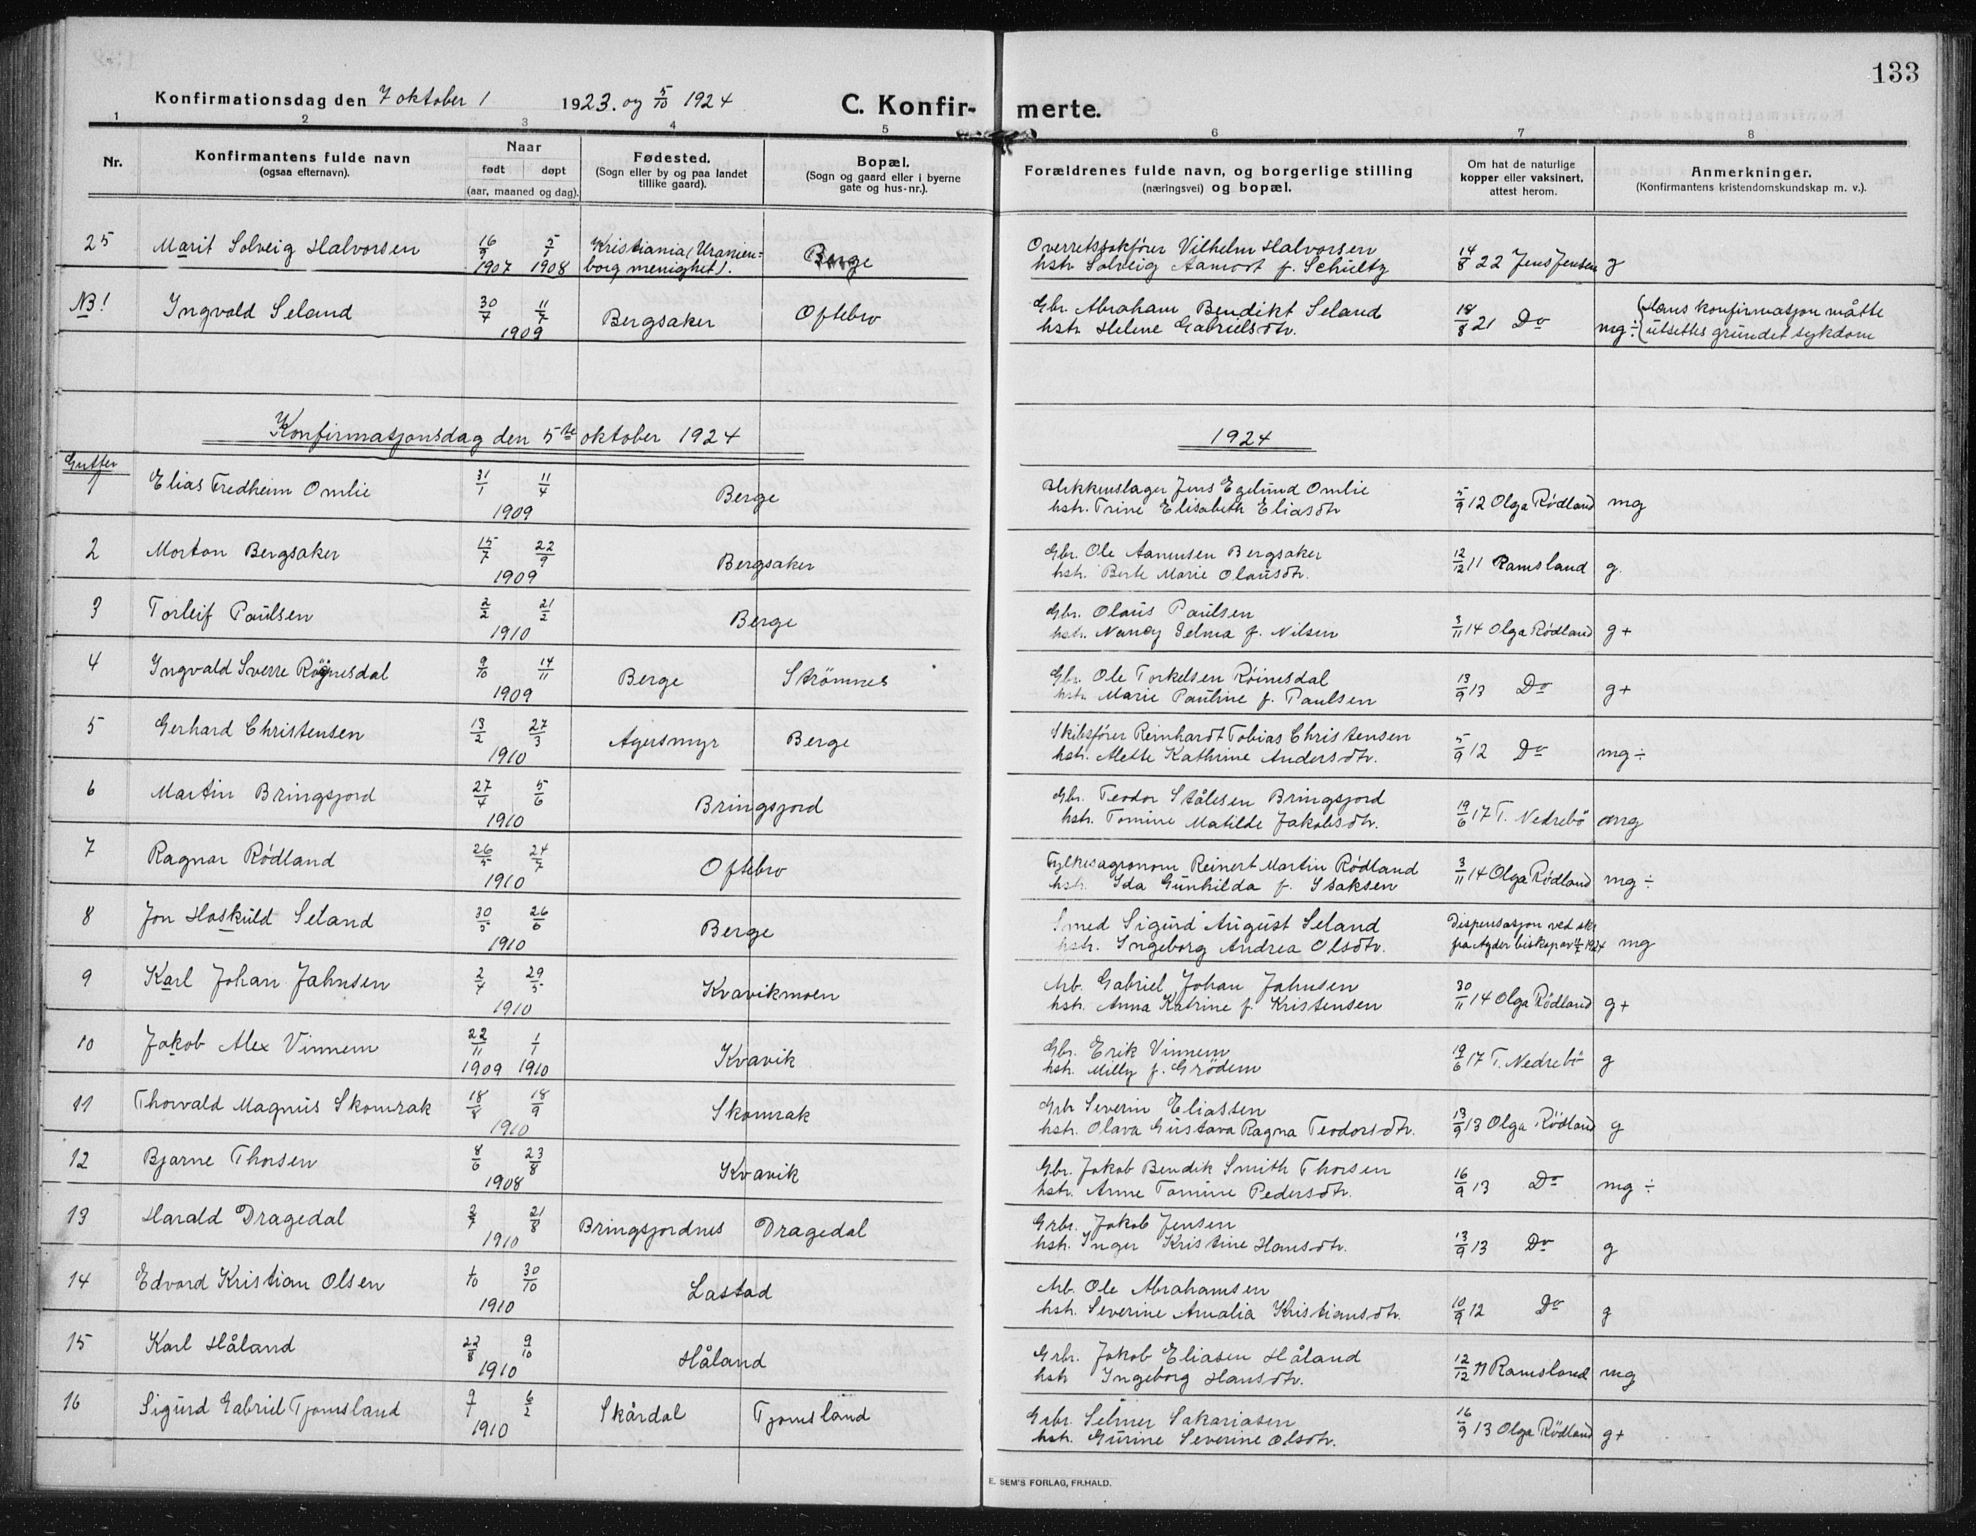 133
Konfirmationsdag den 7 oktober 1 1923. og 5/10 1924
C. Konfir- merte.
1 2 3 4 5 6 7 8
Nr. Konfirmantens fulde navn (ogsaa efternavn). Naar født døpt (aar, maaned og dag). Fødested. (Sogn eller by og paa landet tillike gaard). Bopæl. (Sogn og gaard eller i byerne gate og hus-nr.). Forældrenes fulde navn, og borgerlige stilling (næringsvei) og bopæl. Om hat de naturlige kopper eller vaksinert, attest herom. Anmerkninger. (Konfirmantens kristendomskundskap m. v.).
25 Marit Solveig Halvorsen 16/9 1907 5/1 1908 Kristiania (Uranien= Berge Overretssakfører Vilhelm Halvorsen 14/8 22 Jens Jensen g
borg menighet). hstr. Solveig Aamodt f. Schultz
NB! Ingvald Seland 30/4 11/7 1909 Bergsaker Oftebro Gbr. Abraham Bendikt Seland 18/8 21 Do mg÷ Hans konfirmasjon måtte
hstr. Helene Gabrielsdtr. utsettes grundet sykdom
Konfirmasjonsdag den 5te oktober 1924 1924
Gutter
1 Elias Fredheim Omlie 31/1 11/4 1909 Berge Blikkenslager Jens Egelund Omlie 5/9 12 Olga Rødland mg
hstr. Trine Elisabeth Eliasdtr
2 Morton Bergsaker 15/7 22/9 1909 Bergsaker Gbr. Ole Aanensen Bergsaker 12/12 11 Ramsland g.
hstr. Berte Marie Olausdtr.
3 Torleif Paulsen 2/2 21/2 1910 Berge Gbr. Olaus Paulsen 3/11 14 Olga Rødland g+
hstr. Nancy Selma f. Nilsen
4 Ingvald Sverre Røinesdal 9/10 14/11 1909 Berge Strømnes Gbr. Ole Torkelsen Røinesdal 13/9 13 Do g+
hstr. Marie Pauline f. Paulsen
5 Gerhard Christensen 13/2 27/3 1910 Agersmyr Berge Skibsfører Reinhardt Tobias Christensen 5/9 12 Do mg÷
hstr. Mette Kathrine Andersdtr.
6 Martin Bringsjord 27/4 5/6 1910 Bringsjord Gbr. Teodor Stålesen Bringsjord 19/6 17 T. Nedrebö mg
hstr. Tomine Matilde Jakobsdtr.
7 Ragnar Rødland 26/5 24/7 1910 Oftebro Fylkesagronom Reinert Martin Rødland 3/11 14 Olga Rødland mg÷
hstr. Ida Gunhilda f. Isaksen
8 Jon Haskuld Seland 30/5 26/6 1910 Berge Smed Sigurd August Seland Dispensasjon ved skr
hstr. Ingeborg Andrea Olsdtr. fra Agder biskop av 1924 mg
9 Karl Johan Jahnsen 2/4 29/5 1910 Kvavikmoen Arb. Gabriel Johan Jahnsen 30/11 14 Olga Rødland g+
hstr. Anna Katrine f. Kristensen
10 Jakob Alex Vinnem 22/11 1909 1/1 1910 Kvavik Gbr. Erik Vinnem 19/6 17 T. Nedrebö g
hstr. Milly f. Grödem
11 Thorvald Magnus Skomrak 18/8 18/9 1910 Skomrak Grb Severin Eliassen 13/9 13 Olga Rødland g
hstr. Olava Gustava Ragna Teodorsdtr.
12 Bjarne Thorsen 8/6 23/8 1908 Kvavik Gbr. Jakob Bendik Smith Thorsen 16/9 13 Do mg÷
hstr. Anne Tomine Pedersdtr.
13 Harald Dragedal 2/7 21/8 1910 Bringsjordnes Dragedal Grbr. Jakob Jensen 13/9 13 Do g
hstr. Inger Kristine Hansdtr.
14 Edvard Kristian Olsen 1/10 30/10 1910 Lastad Arb. Ole Abrahamsen 10/9 12 Do g
hstr. Severine Amalia Kristiansdtr.
15 Karl Håland 22/8 9/10 1910 Håland Grbr. Jakob Eliasen Håland 12/12 11 Ramsland mg
hstr Ingeborg Hansdtr.
16 Sigurd Gabriel Tjomsland 7/1 6/2 1910 Skårdal Tjomsland Grbr. Selmer Sakariasen 16/9 13 Olga Rødland g+
hstr. Gurine Severine Olsdtr.
E. SEM'S FORLAG, FR.HALD.